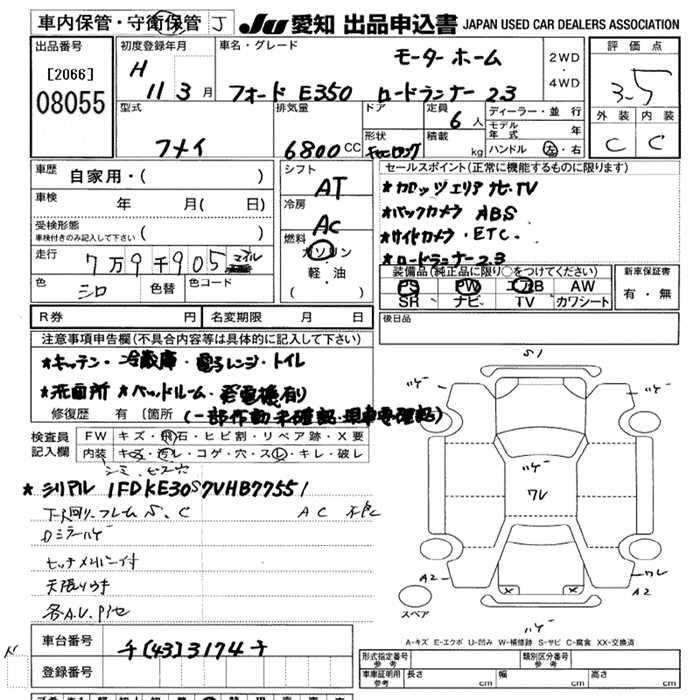 車内保管・守衛保管 J
JU 愛知 出品申込書 JAPAN USED CAR DEALERS ASSOCIATION
出品番号
[2066]
08055
初度登録年月
H 11 3 月
車名・グレード
モーターホーム
フォード E350 ロードランナー 23
2WD
・
4WD
評価点
3.5
外装 内装
C C
型式
フメイ
排気量
6800 CC
ドア
形状
キャンピング
定員
6 人
積載
kg
ディーラー・並行
モデル年式 年
ハンドル 左・右
車歴
自家用・( )
車検
年 月( 日)
受検形態
車検付きのみ記入して下さい ( )
走行
7万9千905 マイル
色
シロ
色替
色コード
シフト
AT
冷房
AC
燃料
ガソリン
・
軽・油
( )
セールスポイント(正常に機能するものに限ります)
★カロッツェリアナビ・TV
★バックカメラ ABS
★サイドカメラ・ETC.
★ロードランナー23
装備品(純正品に限り○をつけてください)
PS PW エアB AW
SR ナビ TV カワシート
新車保証書
有・無
後日品
R券 円
名変期限 月 日
注意事項申告欄(不具合内容等は具体的に記入して下さい)
★キッチン・冷蔵庫・電子レンジ・トイレ
★洗面所 ★ベッドルーム・発電機有り
修復歴 有 (箇所
(一部作動未確認・現車要確認)
検査員
記入欄
FW キズ・飛石・ヒビ割・リペア跡・X要
内装 キズ・汚レ・コゲ・穴・スレ・キレ・破レ
シミ ビス穴
★シリアル 1FDKE30S7VHB77551
下回り・フレーム S、C AC 不良
Dミラーハゲ
天張り
各A.U.
S1
ハゲ
ハゲ
ハゲ
ワレ
A2
A2
ワレ
ハゲ
スペア
A-キズ E-エクボ U-凹み W-補修跡 S-サビ C-腐食 XX-交換済
車台番号
チ[43]3174チ
登録番号
形式指定番号
参考
類別区分番号
参考
車庫証明用
参考
長さ cm
幅 cm
高さ cm